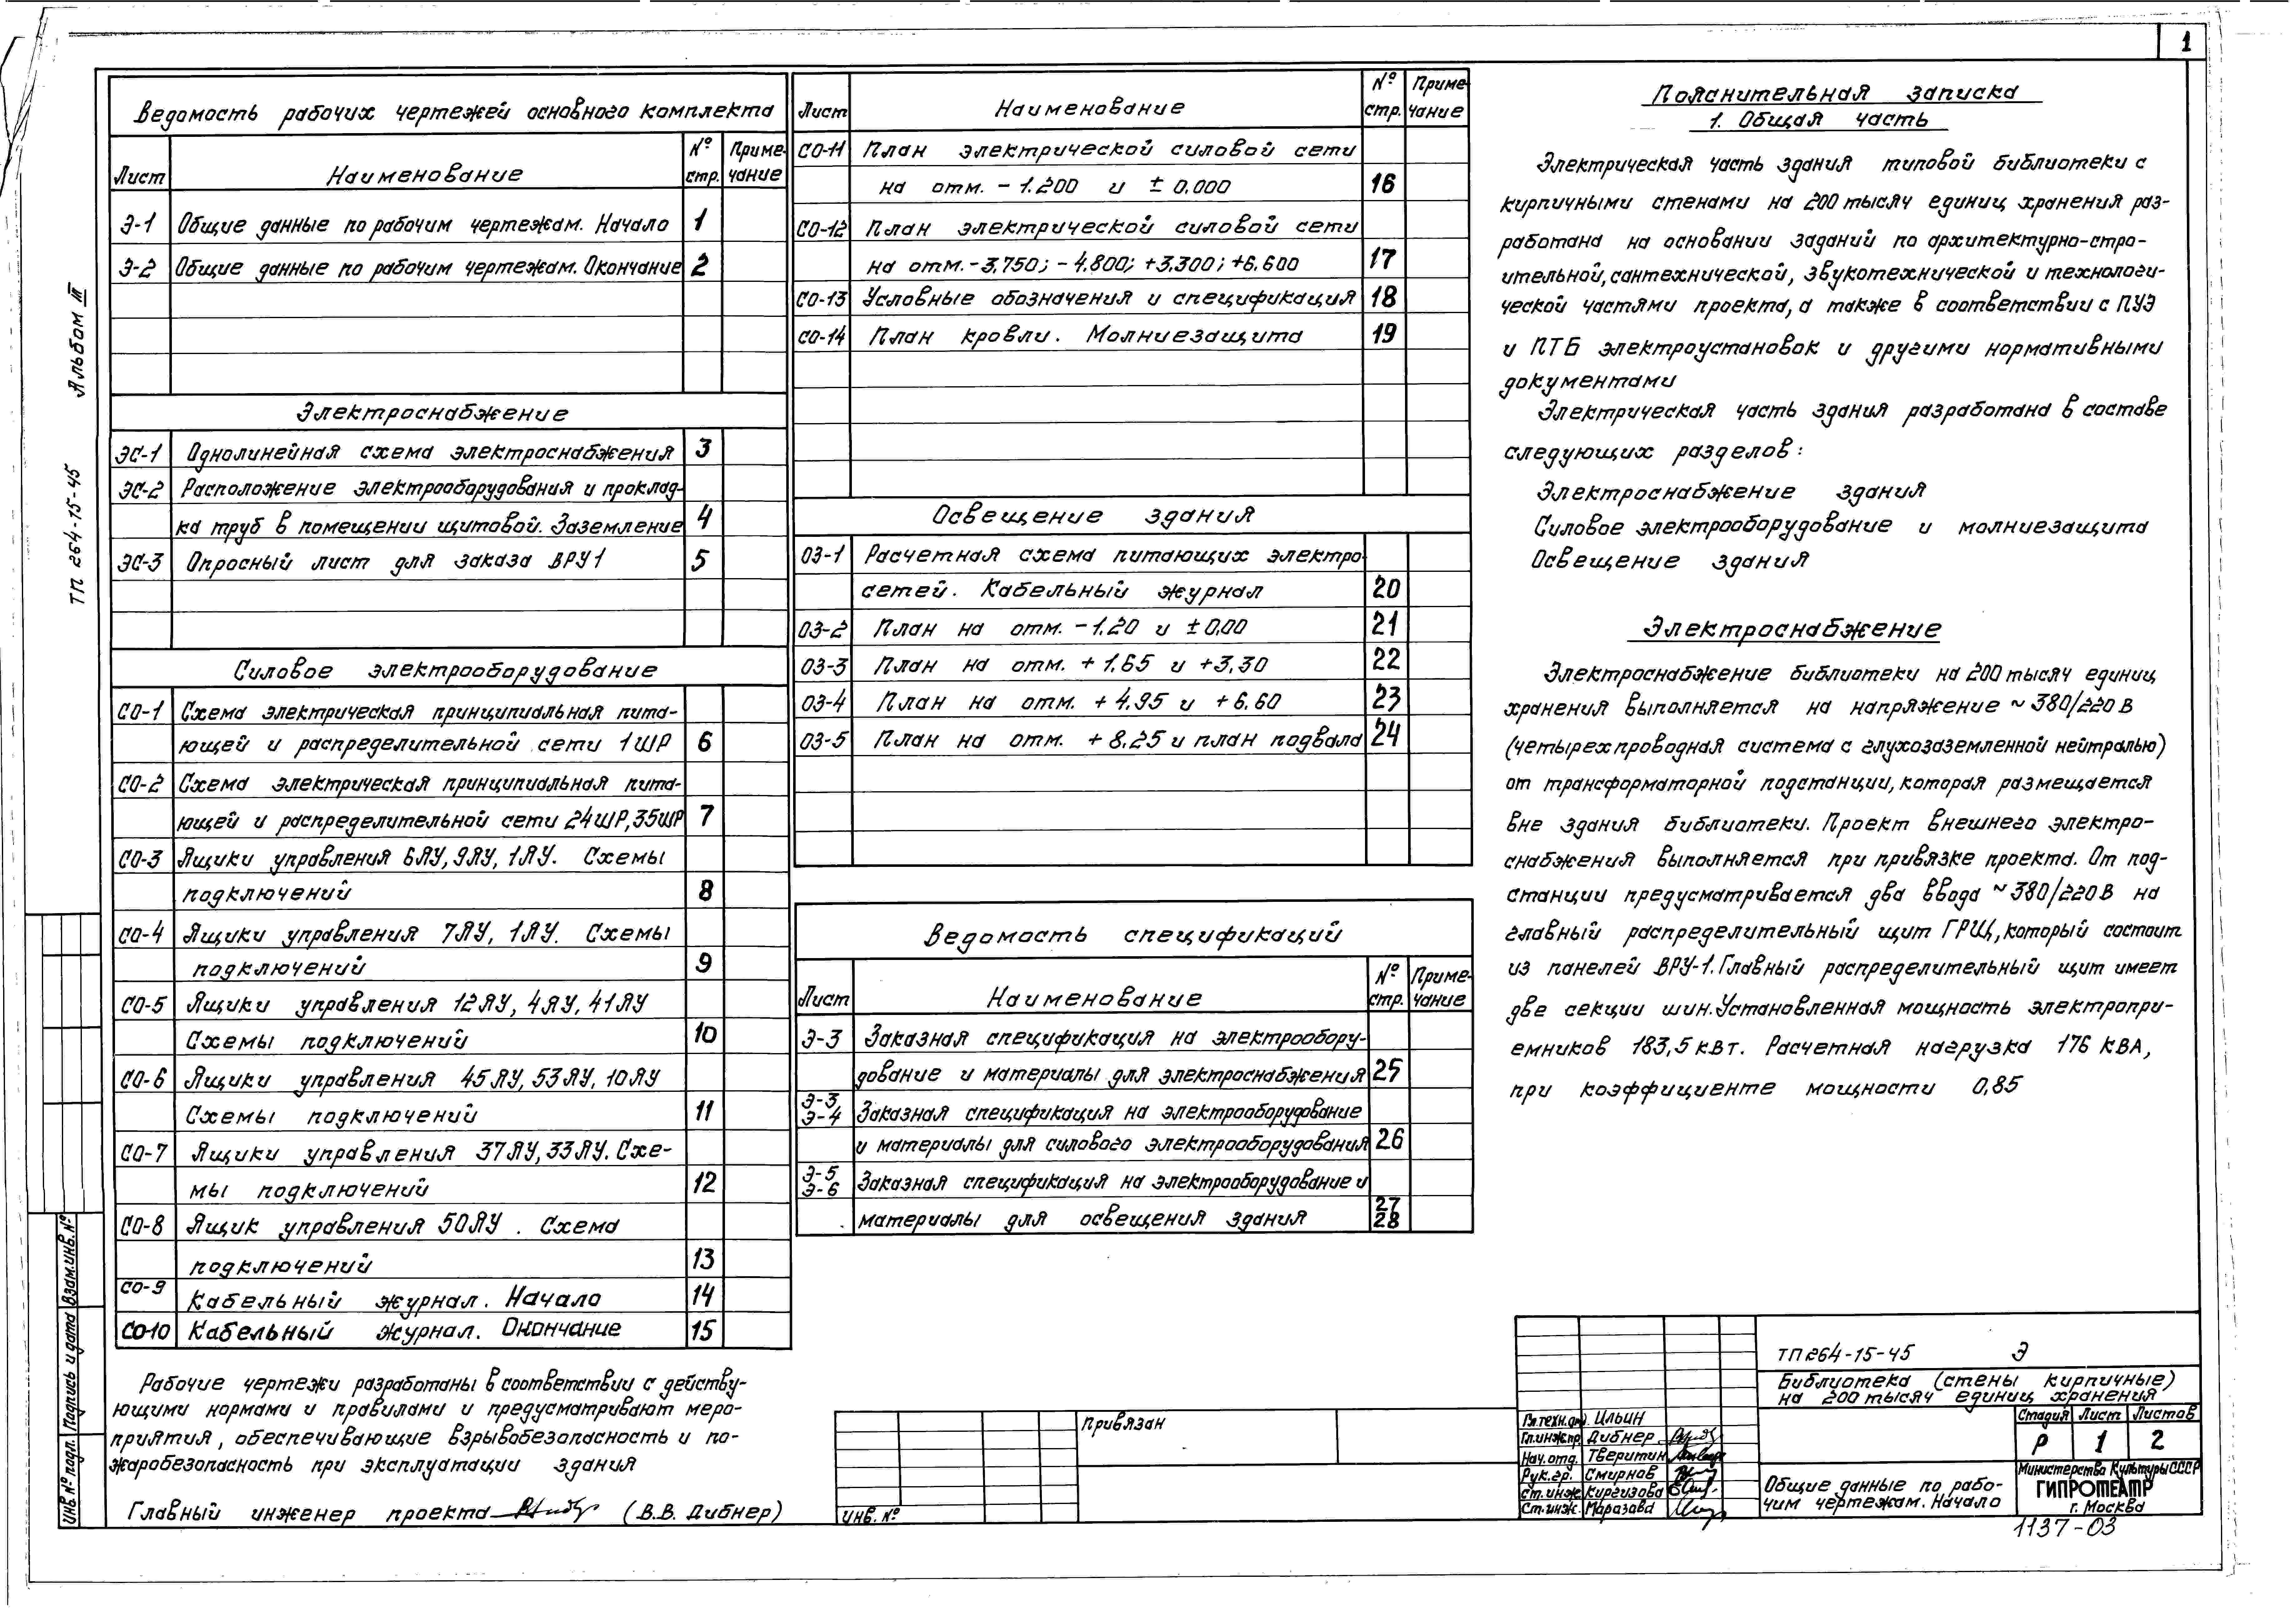 1
Альбом III
ТП 264-15-45
Ведомость рабочих чертежей основного комплекта
Лист Наименование № стр. Приме-чание
Э-1 Общие данные по рабочим чертежам. Начало 1
Э-2 Общие данные по рабочим чертежам. Окончание 2
Электроснабжение
ЭС-1 Однолинейная схема электроснабжения 3
ЭС-2 Расположение электрооборудования и проклад-
ка труб в помещении щитовой. Заземление 4
ЭС-3 Опросный лист для заказа ВРУ1 5
Силовое электрооборудование
СО-1 Схема электрическая принципиальная пита-
ющей и распределительной сети 1ШР 6
СО-2 Схема электрическая принципиальная пита-
ющей и распределительной сети 24ШР, 35ШР 7
СО-3 Ящики управления 6ЯУ, 9ЯУ, 1ЯУ. Схемы
подключений 8
СО-4 Ящики управления 7ЯУ, 1ЯУ. Схемы
подключений 9
СО-5 Ящики управления 12ЯУ, 4ЯУ, 41ЯУ
Схемы подключений 10
СО-6 Ящики управления 45ЯУ, 53ЯУ, 10ЯУ
Схемы подключений 11
СО-7 Ящики управления 37ЯУ, 33ЯУ. Схе-
мы подключений 12
СО-8 Ящик управления 50ЯУ. Схема
подключений 13
СО-9 Кабельный журнал. Начало 14
СО-10 Кабельный журнал. Окончание 15
Рабочие чертежи разработаны в соответствии с действу-
ющими нормами и правилами и предусматривают меро-
приятия, обеспечивающие взрывобезопасность и по-
жаробезопасность при эксплуатации здания
Главный инженер проекта (В.В. Дибнер)
Лист Наименование № стр. Приме-чание
СО-11 План электрической силовой сети
на отм. - 1.200 и ± 0.000 16
СО-12 План электрической силовой сети
на отм. - 3.750; - 4.800; +3.300; +6.600 17
СО-13 Условные обозначения и спецификация 18
СО-14 План кровли. Молниезащита 19
Освещение здания
ОЗ-1 Расчетная схема питающих электро-
сетей. Кабельный журнал 20
ОЗ-2 План на отм. -1.20 и ±0.00 21
ОЗ-3 План на отм. + 1.65 и +3.30 22
ОЗ-4 План на отм. + 4.95 и +6.60 23
ОЗ-5 План на отм. + 8.25 и план подвала 24
Ведомость спецификаций
Лист Наименование № стр. Приме-чание
Э-3 Заказная спецификация на электрообору-
дование и материалы для электроснабжения 25
Э-3 Э-4 Заказная спецификация на электрооборудование
и материалы для силового электрооборудования 26
Э-5 Э-6 Заказная спецификация на электрооборудование и
материалы для освещения здания 27 28
Пояснительная записка
1. Общая часть
Электрическая часть здания типовой библиотеки с
кирпичными стенами на 200 тысяч единиц хранения раз-
работана на основании заданий по архитектурно-стро-
ительной, сантехнической, звукотехнической и технологи-
ческой частями проекта, а также в соответствии с ПУЭ
и ПТБ электроустановок и другими нормативными
документами
Электрическая часть здания разработана в составе
следующих разделов:
Электроснабжение здания
Силовое электрооборудование и молниезащита
Освещение здания
Электроснабжение
Электроснабжение библиотеки на 200 тысяч единиц
хранения выполняется на напряжение ~ 380/220 В
(четырехпроводная система с глухозаземленной нейтралью)
от трансформаторной подстанции, которая размещается
вне здания библиотеки. Проект внешнего электро-
снабжения выполняется при привязке проекта. От под-
станции предусматривается два ввода ~ 380/220 В на
главный распределительный щит ГРЩ, который состоит
из панелей ВРУ-1. Главный распределительный щит имеет
две секции шин. Установленная мощность электропри-
емников 183,5 кВт. Расчетная нагрузка 176 кВА,
при коэффициенте мощности 0,85
Инв. № подл. Подпись и дата Взам. инв. №
Привязан
Инв. №
Гл. техн. отд. Ильин
Гл. инж. пр. Дибнер
Нач. отд. Тверитин
Рук. гр. Смирнов
Ст. инж. Киргизова
Ст. инж. Маразава
ТП 264-15-45 Э
Библиотека (стены кирпичные)
на 200 тысяч единиц хранения
Стадия Лист Листов
Р 1 2
Общие данные по рабо-
чим чертежам. Начало
Министерство Культуры СССР
ГИПРОТЕАТР
г. Москва
1137-03